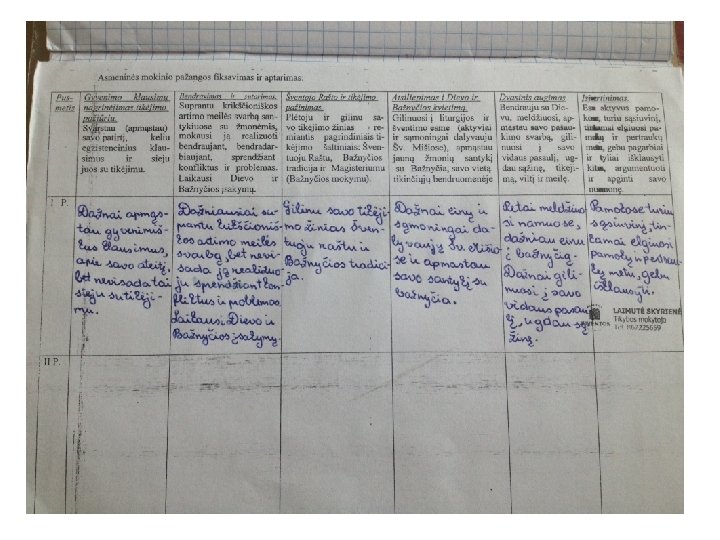 Asmeninės mokinio pažangos fiksavimas ir aptarimas.
Pus-
metis
Gyvenimo klausimų
nagrinėjimas tikėjimo
požiūriu.
Svarstau (apmąstau)
savo patirtį, keliu
egzistencinius klau-
simus ir sieju
juos su tikėjimu.
Bendravimas ir sutarimas.
Suprantu krikščioniškos
artimo meilės svarbą san-
tykiuose su žmonėmis,
mokausi ją realizuoti
bendraujant, bendradar-
biaujant, sprendžiant
konfliktus ir problemas.
Laikausi Dievo ir
Bažnyčios įsakymų.
Švento Rašto ir tikėjimo
pažinimas.
Plėtoju ir gilinu sa-
vo tikėjimo žinias re-
miantis pagrindiniais ti-
kėjimo šaltiniais: Šven-
tuoju Raštu, Bažnyčios
tradicija ir Magisteriumu
(Bažnyčios mokymu).
Atsiliepimas į Dievo ir
Bažnyčios kvietimą.
Gilinuosi į liturgijos ir
šventimo esmę (aktyviai
ir sąmoningai dalyvauju
Šv. Mišiose), apmąstau
jaunų žmonių santykį
su Bažnyčia, savo vietą
tikinčiųjų bendruomenėje
Dvasinis augimas
Bendrauju su Die-
vu, meldžiuosi, ap-
mąstau savo pašau-
kimo svarbą, gili-
nuosi į savo
vidaus pasaulį, ug-
dau sąžinę, tikėji-
mą, viltį ir meilę.
Įsivertinimas.
Esu aktyvus pamo-
kose, turiu sąsiuvinį,
tinkamai elgiuosi pa-
mokų ir pertraukų
metu, gebu pagarbiai
ir tyliai išklausyti
kitus, argumentuoti
ir apginti savo
nuomonę.
I P.
Dažnai apmąs-
tau gyvenimiš-
kus klausimus,
apie savo ateitį,
bet nevisada tai
sieju su tikėji-
mu.
Dažniausiai su-
prantu krikščioniš-
kos artimo meilės
svarbą bet nevi-
sada ją realizuo-
ju sprendžiant kon-
fliktus ir problemas.
Laikausi Dievo ir
Bažnyčios įsakymų.
Gilinu savo tikėji-
mo žinias šven-
tuoju raštu ir
Bažnyčios tradici-
ja.
Dažnai einu ir
sąmoningai da-
lyvauju Šv. Mišio-
se ir apmąstau
savo santykį su
bažnyčia.
Retai meldžiuo-
si namuose,
dažniau einu
į bažnyčią.
Dažnai gili-
nuosi į savo
vidaus pasau-
lį, ugdau są-
žinę.
Pamokose turiu
sąsiuvinį, tin-
kamai elgiuosi
pamokų ir pertrau-
kų metu, gebu
išklausyti.
LAIMUTĖ SKYRIENĖ
Tikybos mokytoja
II P.